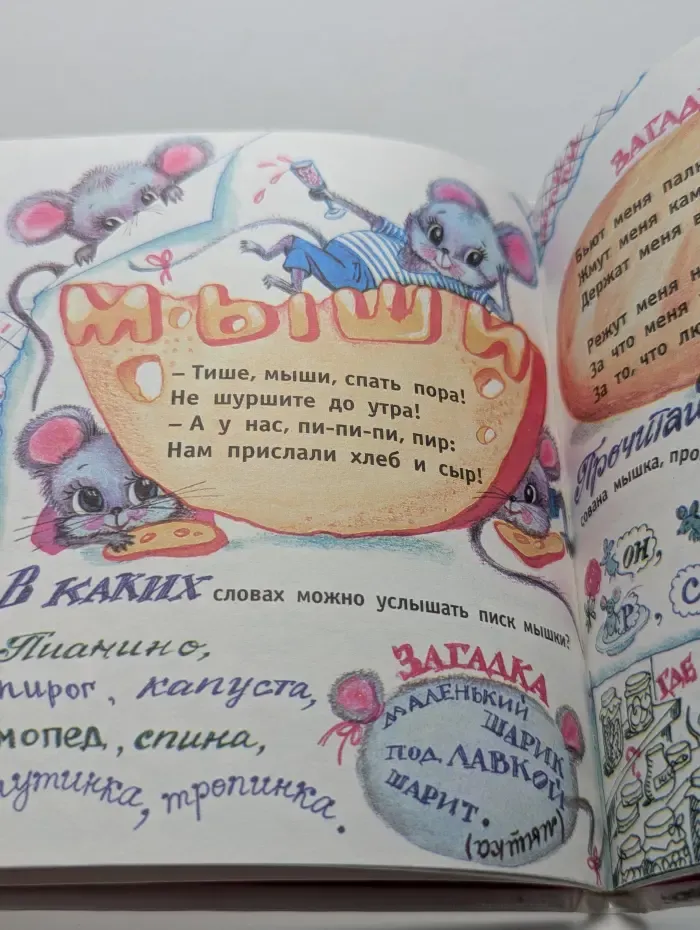 МЫШИ
– Тише, мыши, спать пора!
Не шуршите до утра!
– А у нас, пи-пи-пи, пир:
Нам прислали хлеб и сыр!
В КАКИХ словах можно услышать писк мышки?
Пианино,
пирог, капуста,
мопед, спина,
паутинка, тропинка.
ЗАГАДКА
МАЛЕНЬКИЙ
ШАРИК
ПОД ЛАВКОЙ
ШАРИТ.
(мышка)
Бьют меня
Жмут меня
Держат меня
Режут меня
За что меня
За то, что
Прочитай
мышка,
ОН
Р, С
ГДЕ